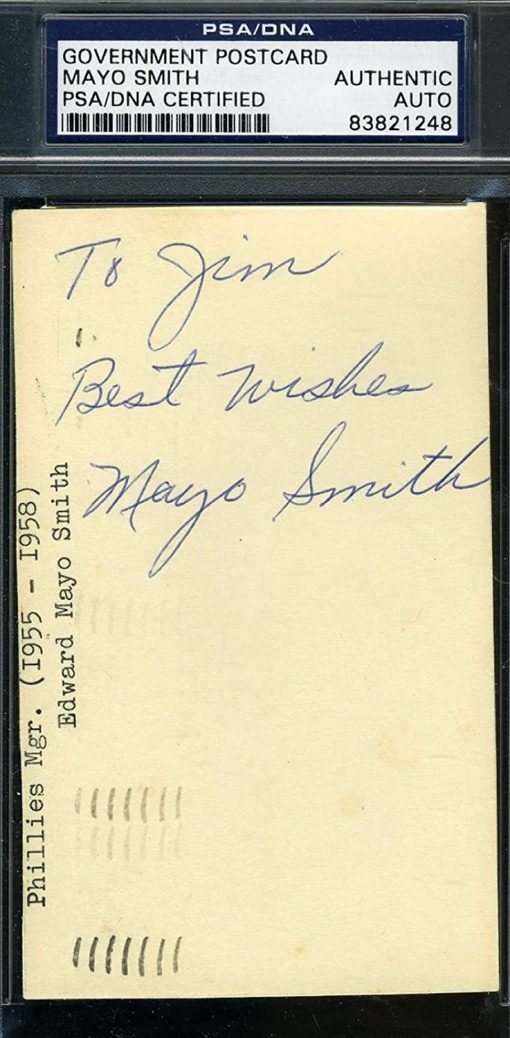 PSA/DNA
GOVERNMENT POSTCARD
MAYO SMITH AUTHENTIC
PSA/DNA CERTIFIED AUTO
83821248
To Jim
Best Wishes
Mayo Smith
Phillies Mgr. (1955 - 1958)
Edward Mayo Smith